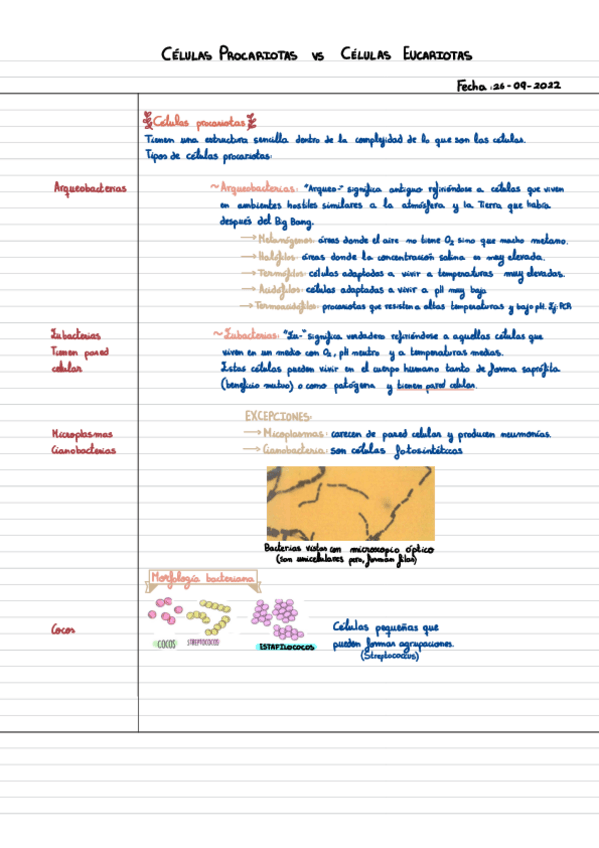 CÉLULAS PROCARIOTAS VS CÉLULAS EUCARIOTAS
Fecha: 26-09-2022
Células procariotas
Tienen una estructura sencilla dentro de la complejidad de lo que son las células.
Tipos de células procariotas:
Arqueobacterias
~Arqueobacterias: "Arqueo-" significa antiguo refiriéndose a células que viven
en ambientes hostiles similares a la atmósfera y la Tierra que había
después del Big Bang.
→ Metanógenos: áreas donde el aire no tiene O₂ sino que mucho metano.
→ Halófilos: áreas donde la concentración salina es muy elevada.
→ Termófilos: células adaptadas a vivir a temperaturas muy elevadas.
→ Acidófilos: células adaptadas a vivir a pH muy bajo
→ Termoacidófilos: procariotas que resisten a altas temperaturas y bajo pH. Ej: PCR
Eubacterias
Tienen pared
celular
~Eubacterias: "Eu-" significa verdadero refiriéndose a aquellas células que
viven en un medio con O₂, pH neutro y a temperaturas medias.
Estas células pueden vivir en el cuerpo humano tanto de forma saprófita
(beneficio mutuo) o como patógena y tienen pared celular.
EXCEPCIONES:
Microplasmas
Cianobacterias
→ Micoplasmas: carecen de pared celular y producen neumonías.
→ Cianobacteria: son células fotosintéticas
Bacterias vistas con microscopio óptico
(son unicelulares pero, forman filas)
Morfología bacteriana
Cocos
COCOS
STREPTOCOCOS
ESTAFILOCOCOS
Células pequeñas que
pueden formar agrupaciones.
(Streptococcus)